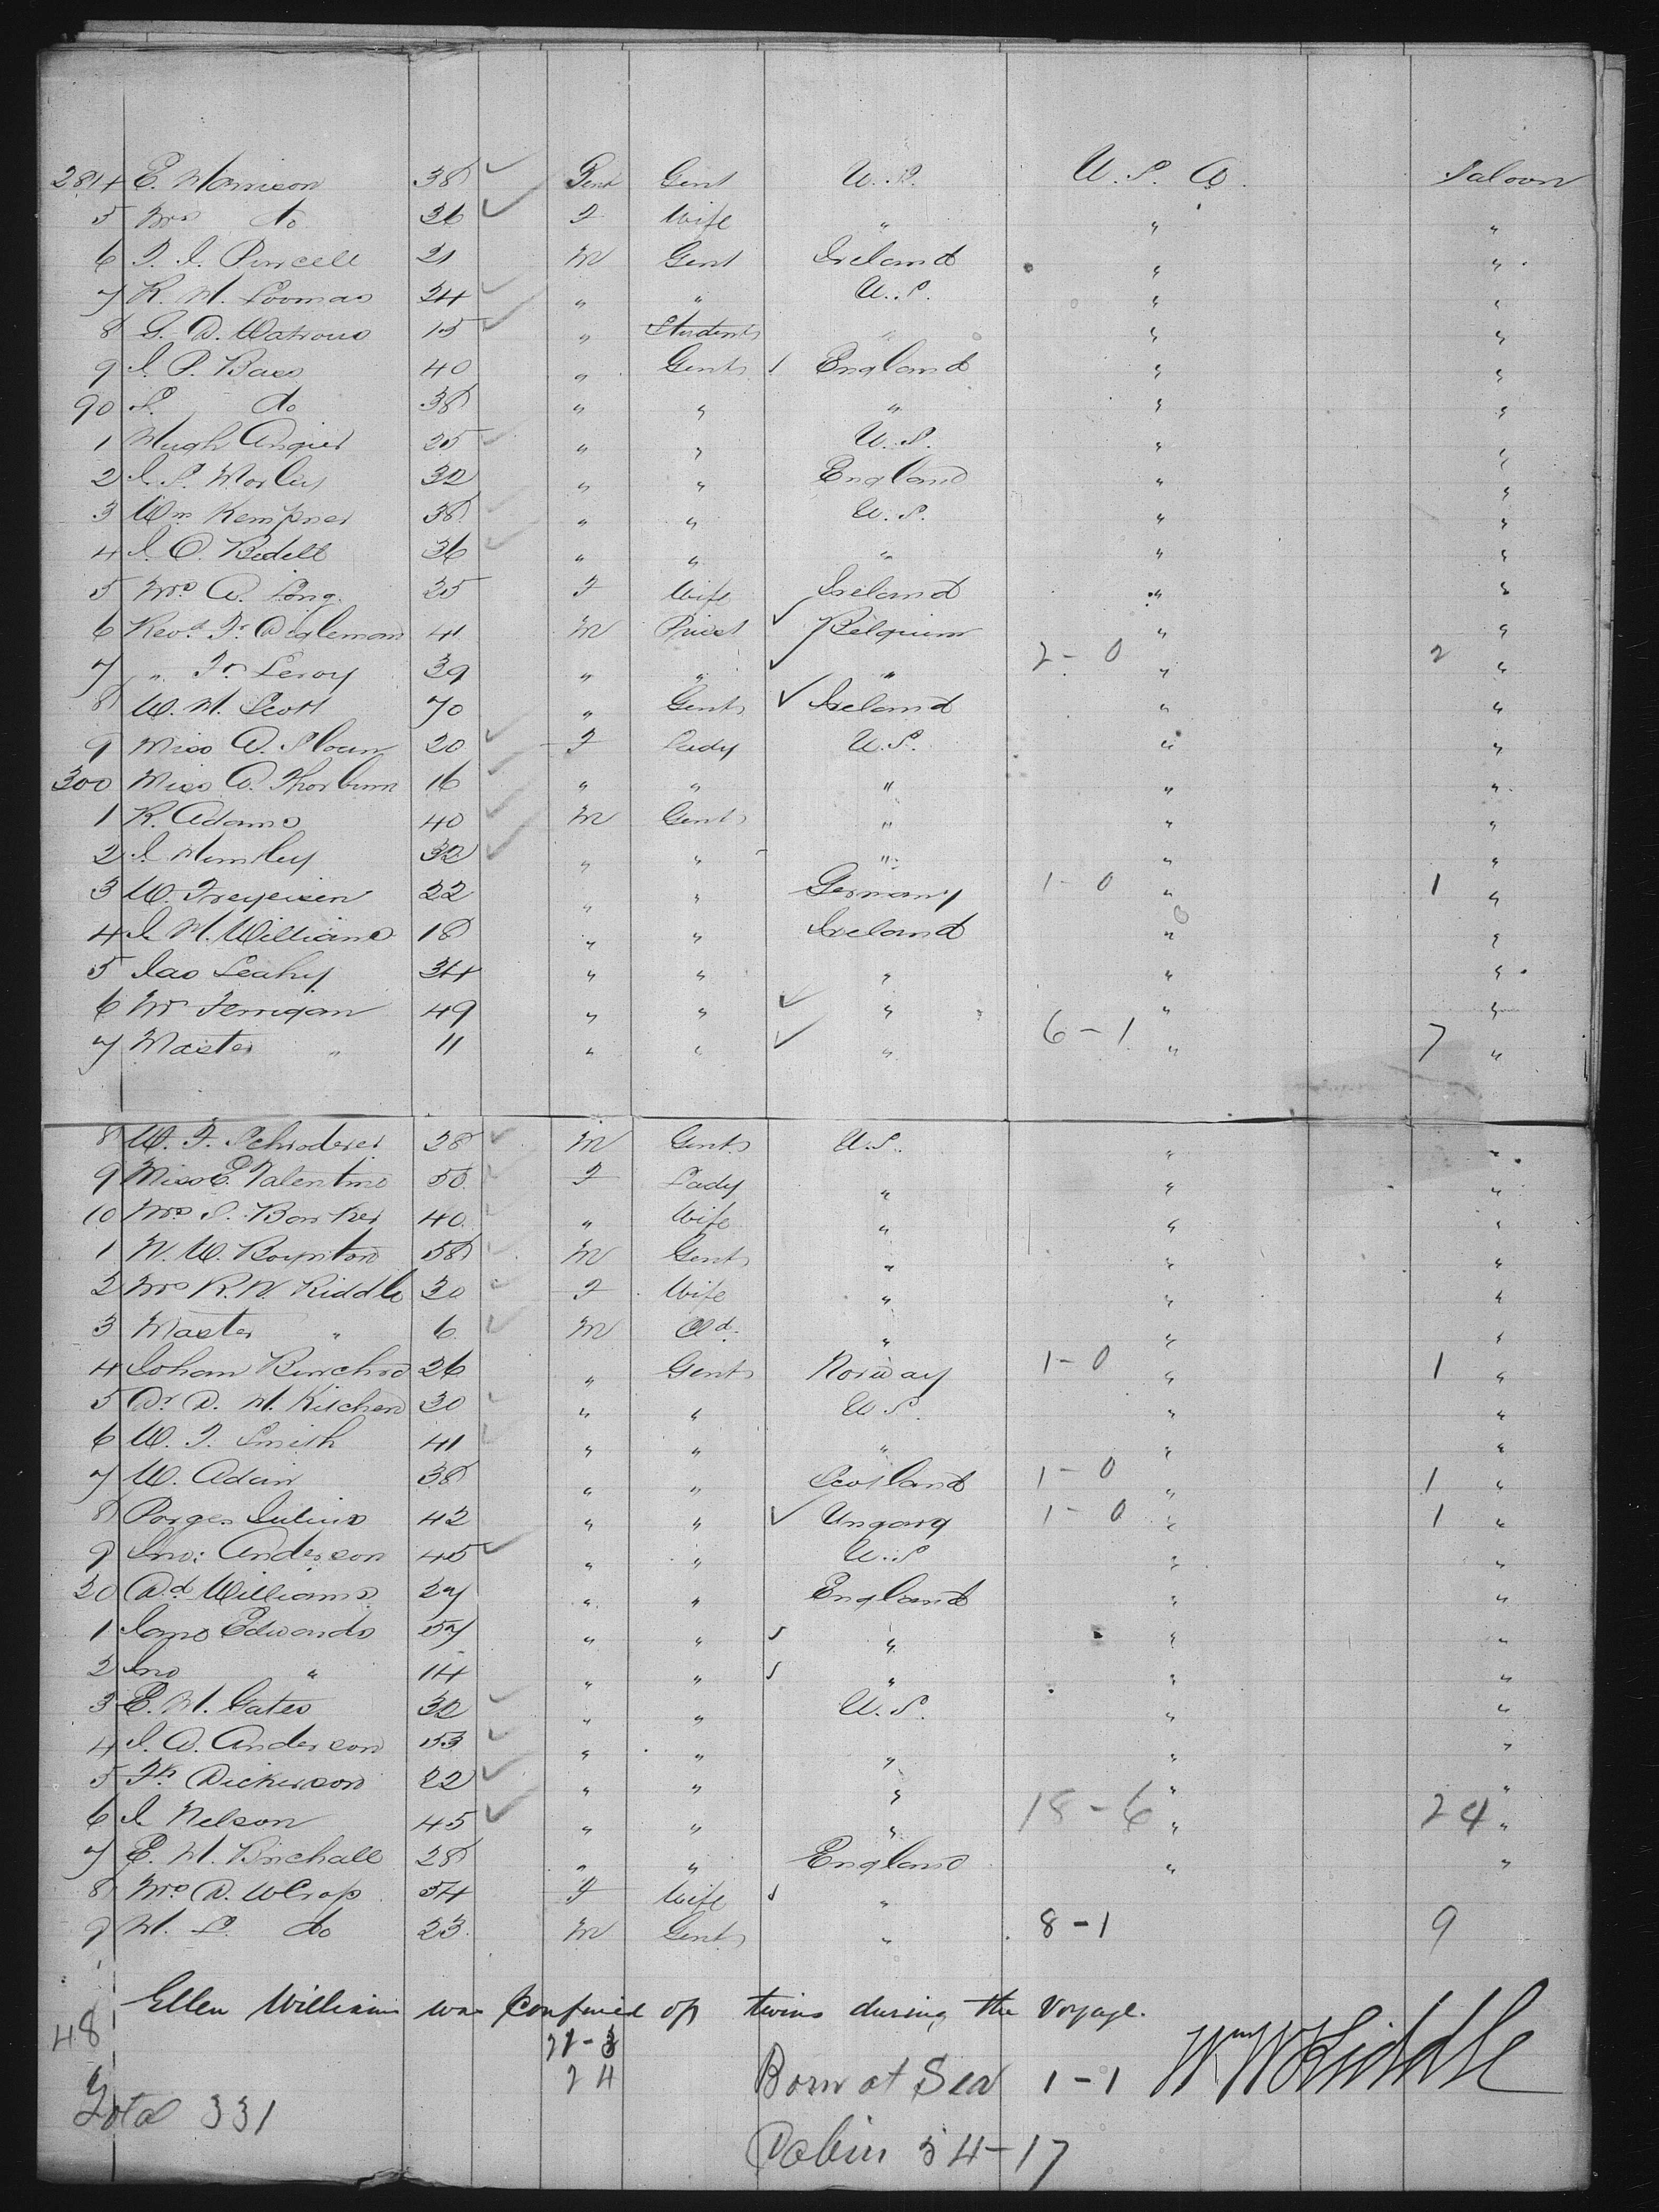 284 E. Morrison 38 ✓ Gent Gent U.S. U.S.A. Saloon
5 Mrs do 36 ✓ F Wife " " "
6 T. J. Purcell 21 M Gent Ireland " "
7 R. H. Loomas 24 ✓ " " U.S. " "
8 G. D. Watrous 15 ✓ " Students " " "
9 J. P. Bass 40 " Gents ✓ England " "
90 S. do 38 " " " " "
1 Hugh Angier 25 ✓ " " U.S. " "
2 J. S. Morley 32 " " England " "
3 Wm Kempner 38 ✓ " " U.S. " "
4 J. O. Bedell 36 ✓ " " " " "
5 Mrs A. Long 25 F Wife Ireland " "
6 Revd Fr Digleman 41 M Priest ✓ Belgium " "
7 " Fr Leroy 39 " " ✓ " 2-0 " 2 "
8 W. H. Scott 70 " Gents ✓ Ireland " "
9 Miss A. Sloan 20 ✓ F Lady U.S. " "
300 Miss A. Thorburn 16 ✓ " " " " "
1 R. Adams 40 ✓ M Gents " " "
2 J. Hemsley 32 ✓ " " " " "
3 W. Freyeisen 22 " " Germany 1-0 " 1 "
4 J. H. Williams 18 " " Ireland " "
5 Jas Leahy 34 " " " " "
6 Mr Ferrigan 49 " " ✓ " " "
7 Master " 11 " " ✓ " 6-1 " 7 "
8 W. F. Schroderer 28 ✓ M Gents U.S. " "
9 Miss E. Valentine 50 ✓ F Lady " " "
10 Mrs S. Barker 40 ✓ " Wife " " "
1 N. W. Boynton 58 ✓ M Gents " " "
2 Mrs R. W. Riddle 30 ✓ F Wife " " "
3 Master " 6 ✓ M Cd. " " "
4 Johan 26 " Gents Norway 1-0 " 1 "
5 Dr D. M. Kitchen 30 ✓ " " U.S. " "
6 W. T. Smith 41 ✓ " " " " "
7 W. Adair 38 " " Scotland 1-0 " 1 "
8 Porges Julius 42 " " ✓ Ungary 1-0 " 1 "
9 Jno: Anderson 45 ✓ " " U.S " "
20 Dd Williams 27 " " England " "
1 James Edwards 57 " " ✓ " " "
2 Jno " 14 " " ✓ " " "
3 E. H. Gates 32 ✓ " " U.S. " "
4 J. A. Anderson 53 ✓ " " " " "
5 Fk Dickerson 22 ✓ " " " " "
6 J. Nelson 45 ✓ " " " 18-6 " 24 "
7 E. H. Birchall 28 " " England " "
8 Mrs D. 54 F Wife ✓ "
9 H. S. do 23 M Gents " 8-1 9
Ellen Williams was Confined of twins during the Voyage.
48 21-3 Wm W Riddle
24 Born at Sea 1-1
Total 331
Cabin 54-17